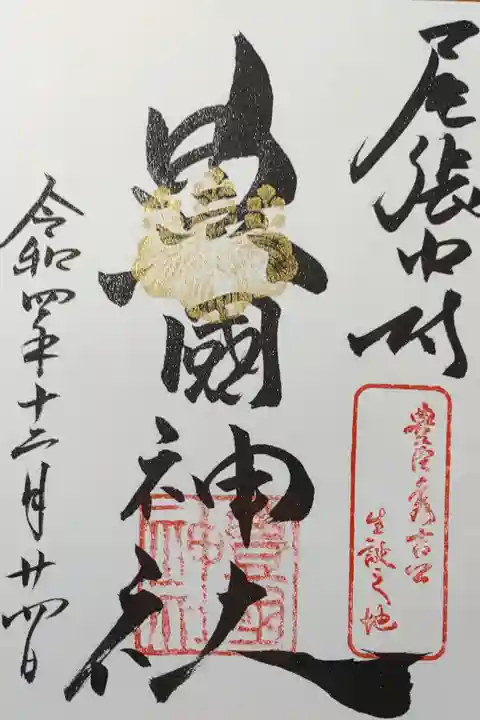 尾張中村
豊臣秀吉公
生誕之地
豊國神社
豊國
神社
令和四年十二月廿四日